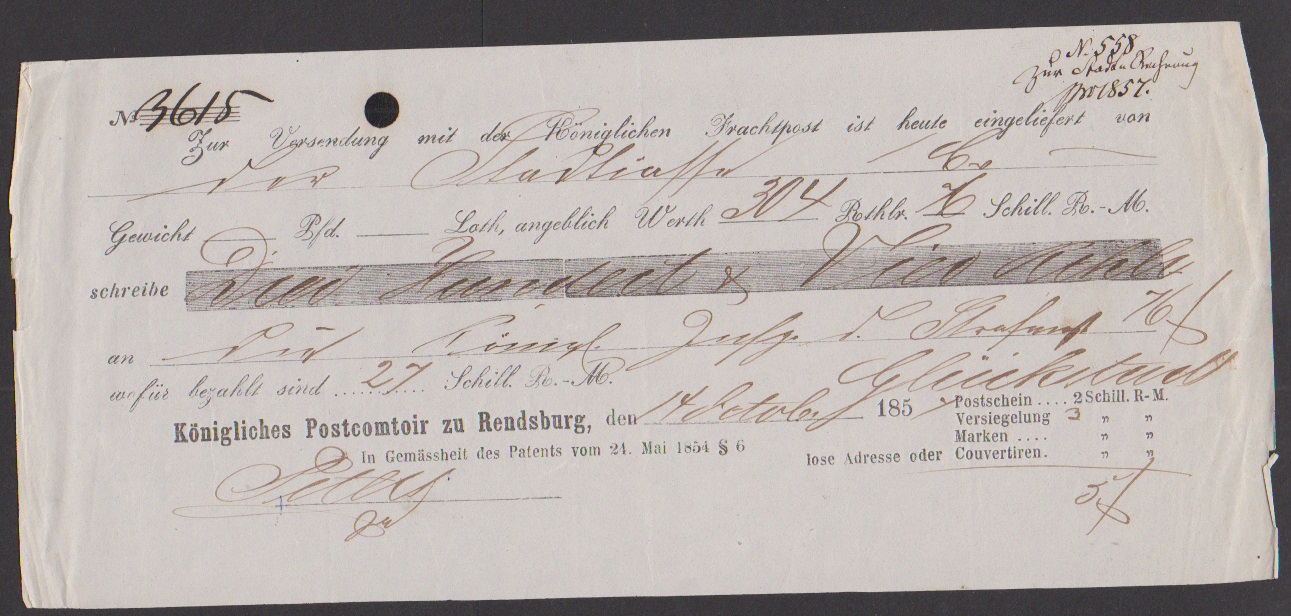 N. 558
Zur Stadt Rechnung
pro 1857.
No 3615
Zur Versendung mit der Königlichen Frachtpost ist heute eingeliefert von
der Stadtcasse
Gewicht Pfd. Loth, angeblich Werth 304 Rthlr. Schill. R.-M.
schreibe Drei Hundert & Vier Rthlr
an die Königl d. Strafanst
wofür bezahlt sind ..... 27 ... Schill. R.-M. Glückstadt
Königliches Postcomtoir zu Rendsburg, den 14 October 185 Postschein .... 2 Schill. R-M.
Versiegelung 3 „ „
In Gemässheit des Patents vom 24. Mai 1854 § 6 Marken .... „ „
lose Adresse oder Couvertiren. „ „
5